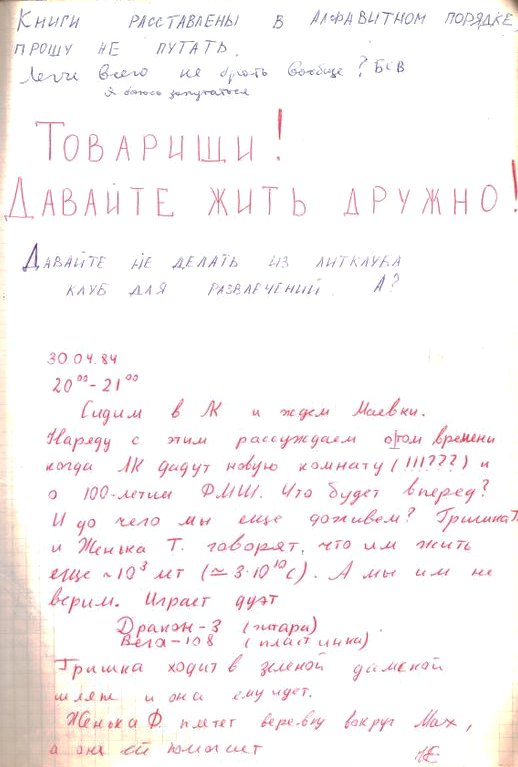 Книги расставлены в алфавитном порядке,
прошу не путать.
Легче всего не брать вообще? БСВ
Я боюсь запутаться
Товарищи!
Давайте жить дружно!
Давайте не делать из литклуба
клуб для развлечений. А?
30.04.84
20⁰⁰-21⁰⁰
Сидим в ЛК и ждем Маевки.
Наряду с этим рассуждаем о том времени
когда ЛК дадут новую комнату (!!!???) и
о 100-летии ФМШ. Что будет вперед?
И до чего мы еще доживем? Гришка Т.
и Женька Т. говорят, что им жить
еще ~10³ лет (≃3·10¹⁰с). А мы им не
верим. Играет дуэт
Дракон-3 (гитара)
Вега-108 (пластинка)
Гришка ходит в зеленой дамской
шляпе и она ему идет.
Женька Ф. плетет веревку вокруг Мах,
а она ей помогает